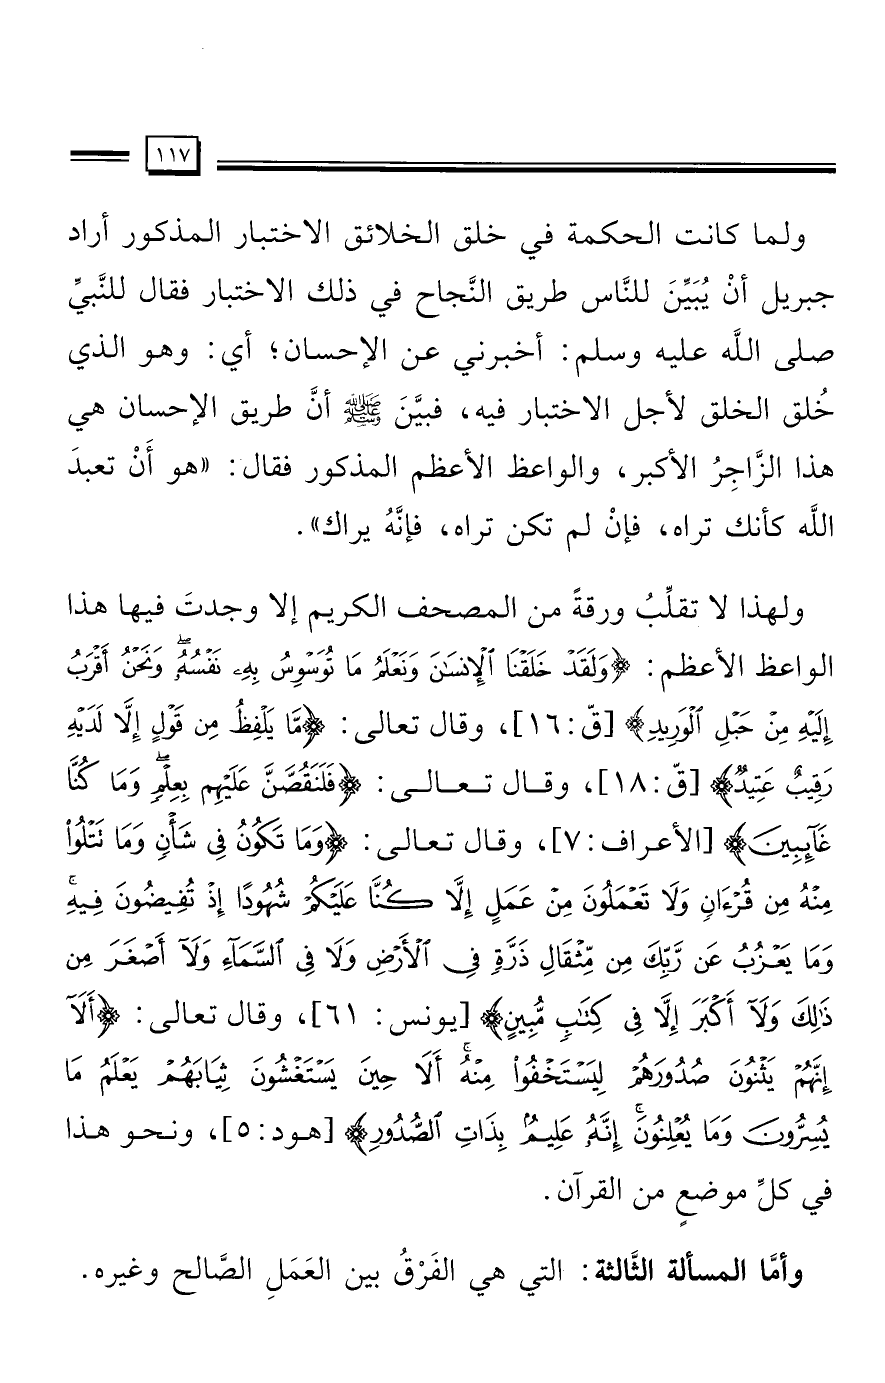 ١١٧
ولما كانت الحكمة في خلق الخلائق الاختبار المذكور أراد
جبريل أنْ يُبَيِّنَ للنَّاس طريق النَّجاح في ذلك الاختبار فقال للنَّبيِّ
صلى اللَّه عليه وسلم: أخبرني عن الإحسان؛ أي: وهو الذي
خُلق الخلق لأجل الاختبار فيه، فبيَّنَ ﷺ أنَّ طريق الإحسان هي
هذا الزَّاجِرُ الأكبر، والواعظ الأعظم المذكور فقال: «هو أَنْ تعبدَ
اللَّه كأنك تراه، فإنْ لم تكن تراه، فإنَّهُ يراك».
ولهذا لا تقلِّبُ ورقةً من المصحف الكريم إلا وجدتَ فيها هذا
الواعظ الأعظم: ﴿وَلَقَدْ خَلَقْنَا ٱلْإِنسَٰنَ وَنَعْلَمُ مَا تُوَسْوِسُ بِهِۦ نَفْسُهُۥۖ وَنَحْنُ أَقْرَبُ
إِلَيْهِ مِنْ حَبْلِ ٱلْوَرِيدِ﴾ [قۤ: ١٦]، وقال تعالى: ﴿مَّا يَلْفِظُ مِن قَوْلٍ إِلَّا لَدَيْهِ
رَقِيبٌ عَتِيدٌ﴾ [قۤ: ١٨]، وقال تعالى: ﴿فَلَنَقُصَّنَّ عَلَيْهِم بِعِلْمٍۖ وَمَا كُنَّا
غَآئِبِينَ﴾ [الأعراف: ٧]، وقال تعالى: ﴿وَمَا تَكُونُ فِى شَأْنٍ وَمَا تَتْلُوا۟
مِنْهُ مِن قُرْءَانٍ وَلَا تَعْمَلُونَ مِنْ عَمَلٍ إِلَّا كُنَّا عَلَيْكُمْ شُهُودًا إِذْ تُفِيضُونَ فِيهِۚ
وَمَا يَعْزُبُ عَن رَّبِّكَ مِن مِّثْقَالِ ذَرَّةٍ فِى ٱلْأَرْضِ وَلَا فِى ٱلسَّمَآءِ وَلَآ أَصْغَرَ مِن
ذَٰلِكَ وَلَآ أَكْبَرَ إِلَّا فِى كِتَٰبٍ مُّبِينٍ﴾ [يونس: ٦١]، وقال تعالى: ﴿أَلَآ
إِنَّهُمْ يَثْنُونَ صُدُورَهُمْ لِيَسْتَخْفُوا۟ مِنْهُۚ أَلَا حِينَ يَسْتَغْشُونَ ثِيَابَهُمْ يَعْلَمُ مَا
يُسِرُّونَ وَمَا يُعْلِنُونَۚ إِنَّهُۥ عَلِيمٌۢ بِذَاتِ ٱلصُّدُورِ﴾ [هود: ٥]، ونحو هذا
في كلِّ موضعٍ من القرآن.
وأمَّا المسألة الثَّالثة: التي هي الفَرْقُ بين العَمَلِ الصَّالح وغيره.